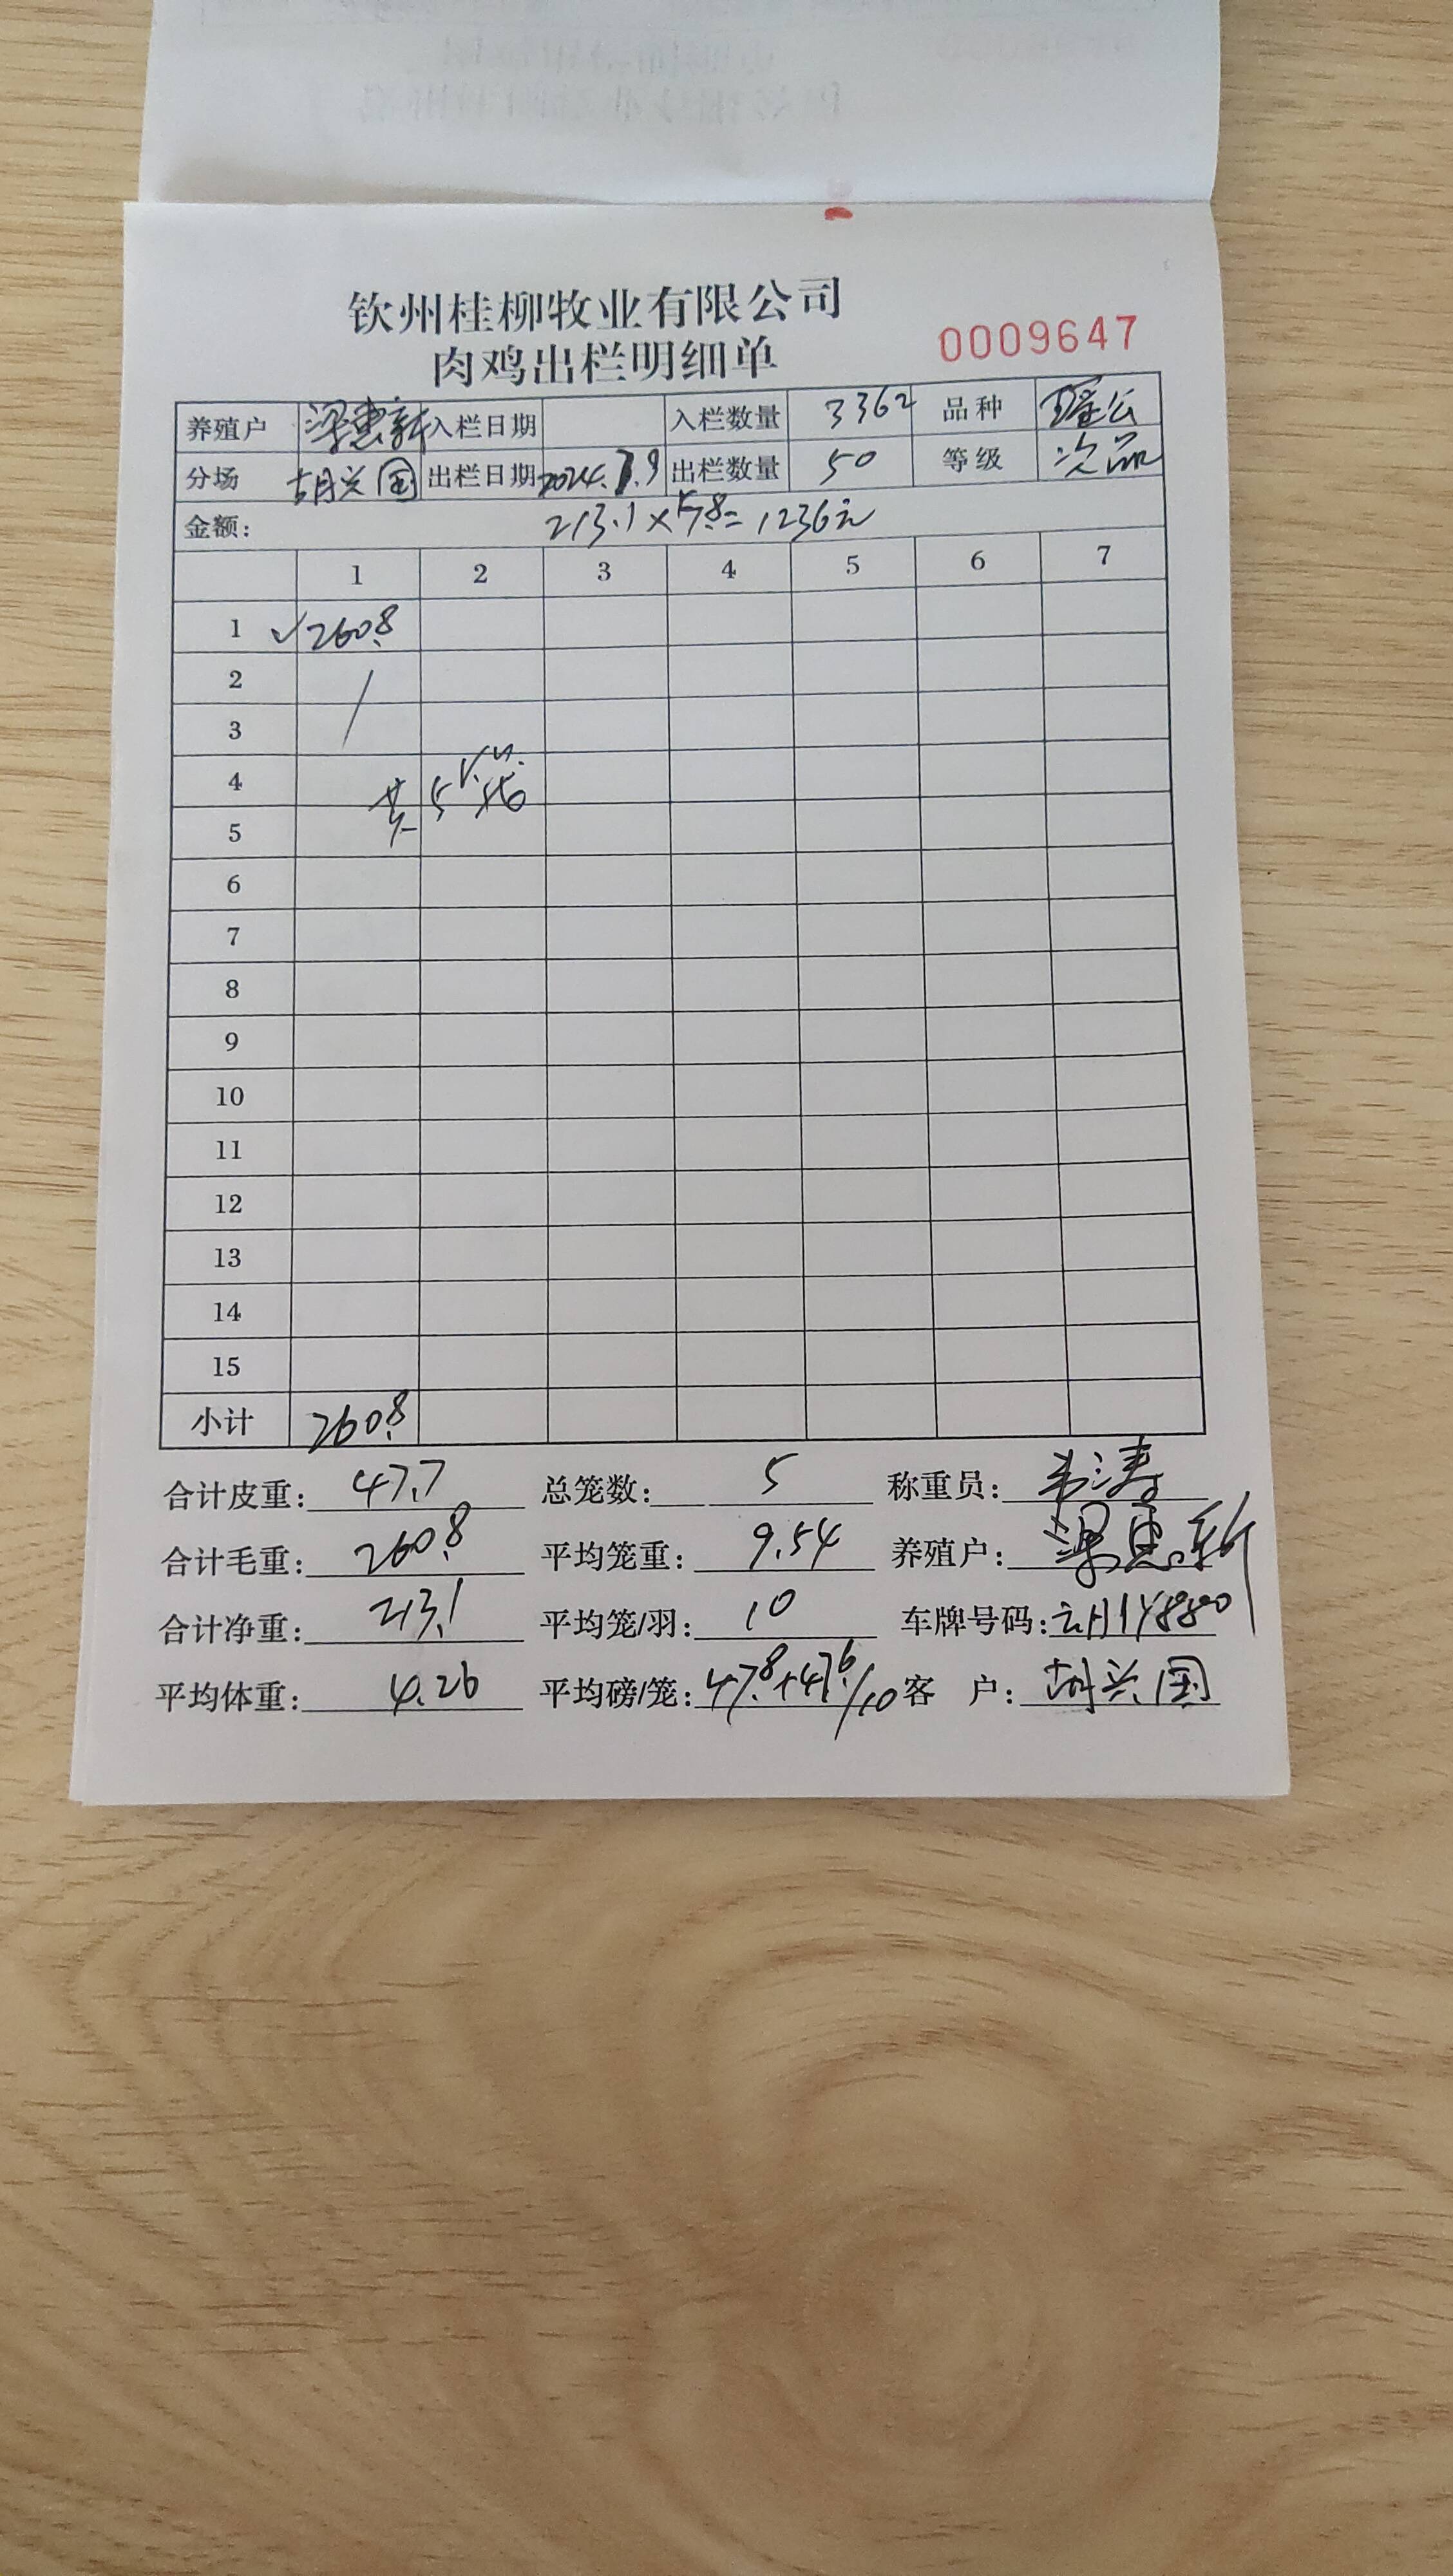 钦州桂柳牧业有限公司
肉鸡出栏明细单
0009647
养殖户 梁惠新 入栏日期 入栏数量 3362 品种 瑶公
分场 胡兴国 出栏日期 2024.7.9 出栏数量 50 等级 次品
金额: 213.1×5.8=1236元
1 2 3 4 5 6 7
1 ✓260.8
2 /
3
4 共5
5
6
7
8
9
10
11
12
13
14
15
小计 260.8
合计皮重: 47.7 总笼数: 5 称重员: 韦涛
合计毛重: 260.8 平均笼重: 9.54 养殖户: 梁惠新
合计净重: 213.1 平均笼/羽: 10 车牌号码:
平均体重: 4.26 平均磅/笼: 47.8+47.6/10 客 户: 胡兴国